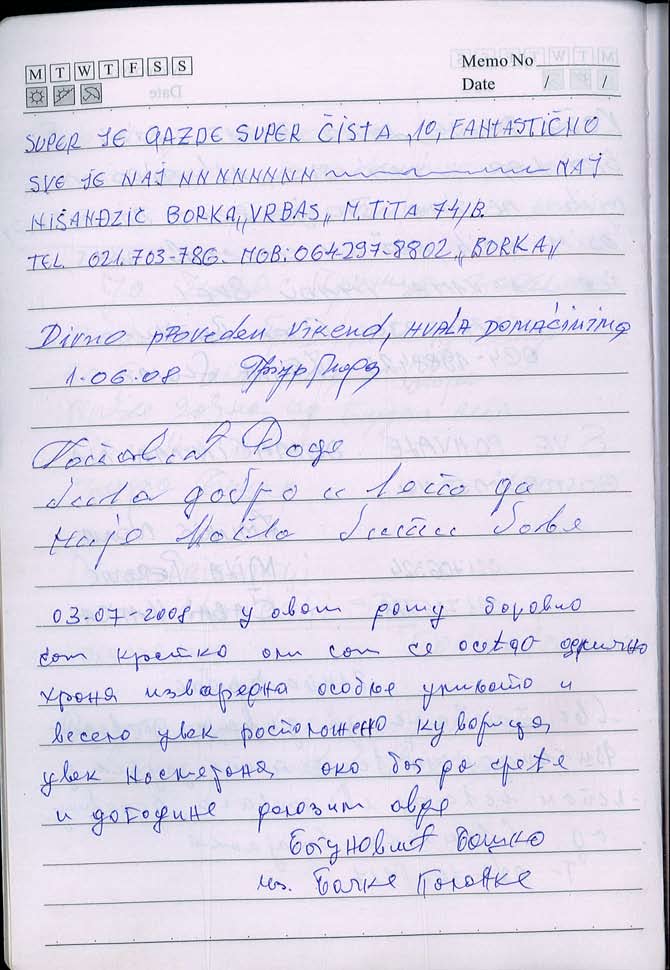 M T W T F S S
Memo No
Date / /
SUPER JE GAZDE SUPER ČISTA, 10, FANTASTIČNO
SVE JE NAJ NNNNNNNN NAJ
NIŠANDŽIČ BORKA,, VRBAS,, M. TITA 74/B.
TEL. 021.703-786. MOB: 064-297-8802 ,,BORKA,,
Divno proveden vikend, HVALA DOMAĆINIMA
1.06.08
Доде
била добро и лепо да
није могло бити боље
03-07-2008 у овом рому боровио
сам кратко али сам се осећао одлично
храна изваредна особље уљивато и
весело увек расположено куварица
увек насмејана ако бог да среће
и догодине долазим овде
Богуновић Бошко
из Бачке Паланке